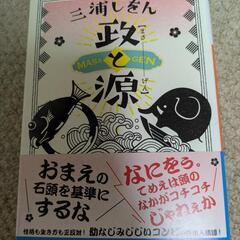 三浦しをん
政と源
【まさ】
【げん】
MASA & GEN
おまえの
石頭を基準に
するな
×
なにをぅ。
てめえは頭の
なかがコチコチ
じゃねぇか
性格も生き方も正反対!
幼なじみじじいコンビ